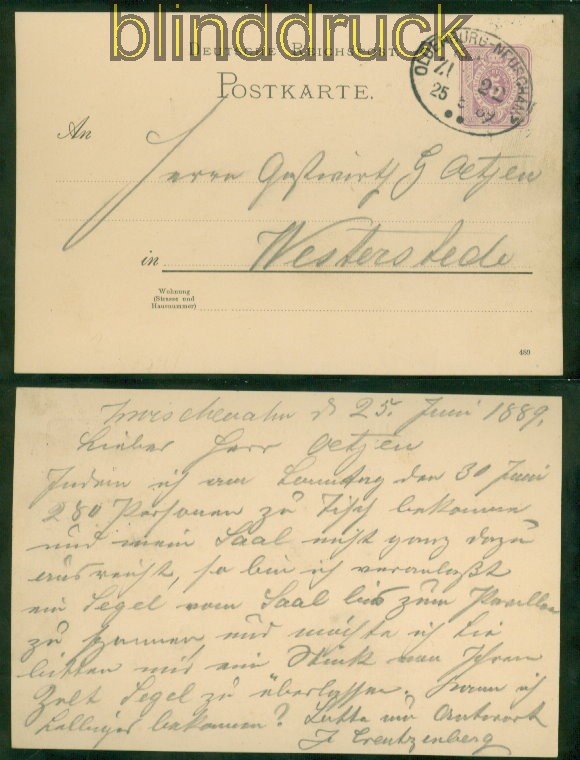 blinddruck
DEUTSCHE REICHSPOST
POSTKARTE.
OLDENBURG-NEUSCHANS
25 6 89
An
Herrn Gastwirth G Oetjen
in Westerstede
Wohnung
(Strasse und
Hausnummer)
489
Zwischenahn d 25. Juni 1889.
Lieber Herr Oetjen
Indem ich am Sonntag den 30 Juni
280 Personen zu Tisch bekomme
und mein Saal nicht ganz dazu
ausreicht, so bin ich veranlaßt
ein Segel vom Saal bis zum Pavillon
zu spannen, und möchte ich Sie
bitten mir ein Stück von Ihrem
Zelt Segel zu überlassen. Kann ich
bekommen? Bitte um Antwort